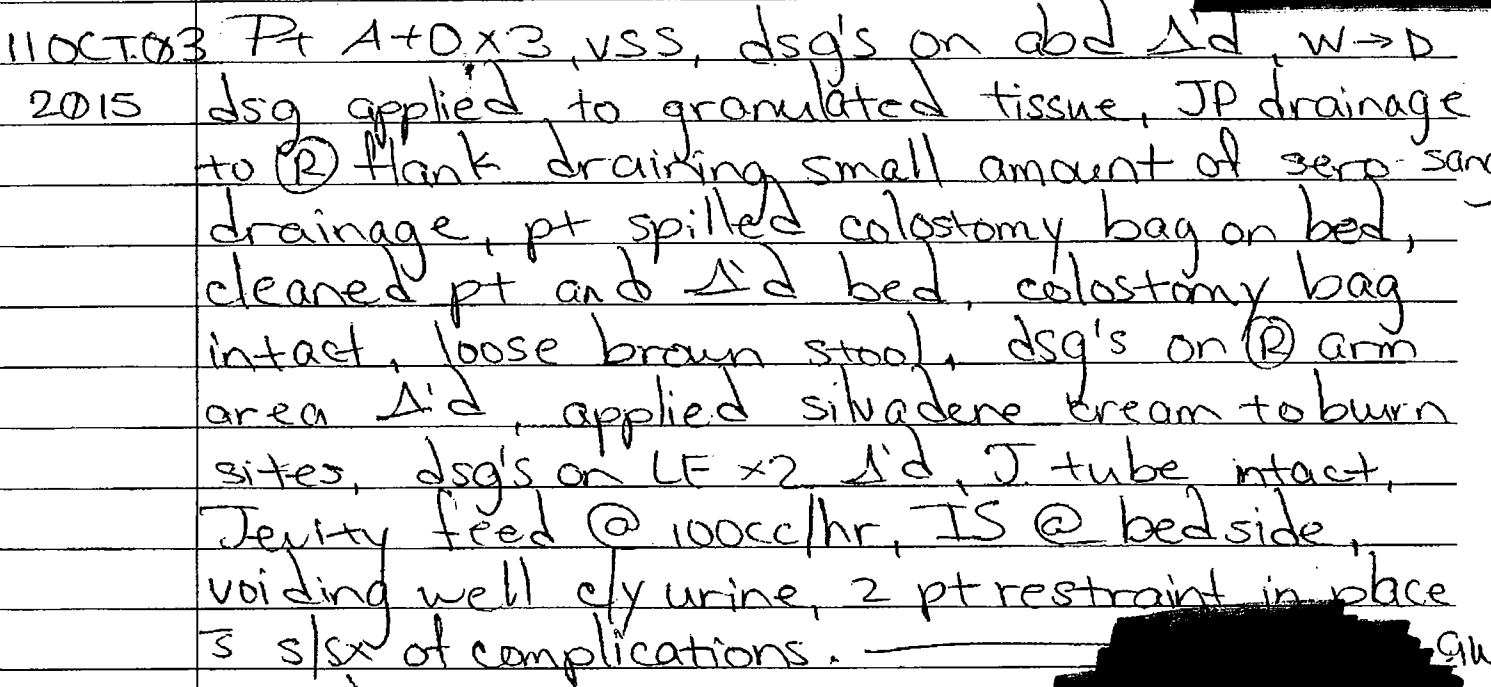 11 OCT. 03 Pt A+O x 3, VSS, dsg's on abd Δ'd, W→D
2015 dsg applied to granulated tissue, JP drainage
to Ⓡ flank draining small amount of sero-sang
drainage, pt spilled colostomy bag on bed,
cleaned pt and Δ'd bed, colostomy bag
intact, loose brown stool, dsg's on Ⓡ arm
area Δ'd, applied silvadene cream to burn
sites, dsg's on LE x2 Δ'd, J. tube intact,
Jevity feed @ 100cc/hr, IS @ bedside,
voiding well c/y urine, 2 pt restraint in place
s̄ s/sx of complications.